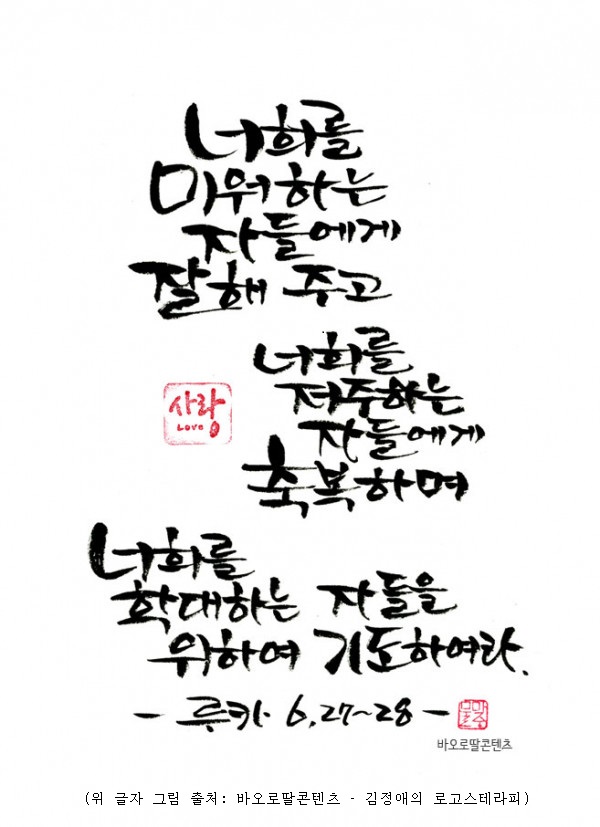 너희를
미워하는
자들에게
잘해 주고
너희를
저주하는
자들에게
축복하며
사랑
Love
너희를
학대하는 자들을
위하여 기도하여라.
- 루카 6,27~28 -
바오로딸콘텐츠
(위 글자 그림 출처: 바오로딸콘텐츠 - 김정애의 로고스테라피)